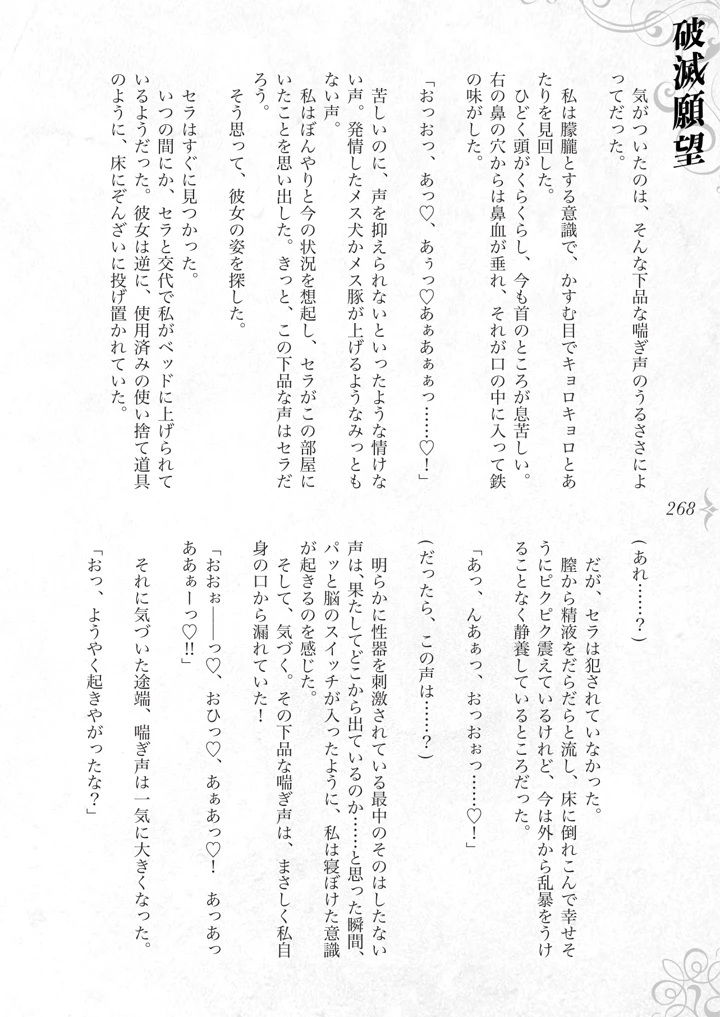 破滅願望
気がついたのは、そんな下品な喘ぎ声のうるささによ
ってだった。
私は朦朧とする意識で、かすむ目でキョロキョロとあ
たりを見回した。
ひどく頭がくらくらし、今も首のところが息苦しい。
右の鼻の穴からは鼻血が垂れ、それが口の中に入って鉄
の味がした。
「おっおっ、あっ♡、あぅっ♡あぁあぁぁっ……♡！」
苦しいのに、声を抑えられないといったような情けな
い声。発情したメス犬かメス豚が上げるようなみっとも
ない声。
私はぼんやりと今の状況を想起し、セラがこの部屋に
いたことを思い出した。きっと、この下品な声はセラだ
ろう。
そう思って、彼女の姿を探した。
セラはすぐに見つかった。
いつの間にか、セラと交代で私がベッドに上げられて
いるようだった。彼女は逆に、使用済みの使い捨て道具
のように、床にぞんざいに投げ置かれていた。
268
(あれ……？)
だが、セラは犯されていなかった。
膣から精液をだらだらと流し、床に倒れこんで幸せそ
うにピクピク震えているけれど、今は外から乱暴をうけ
ることなく静養しているところだった。
「あっ、んあぁっ、おっおぉっ……♡！」
(だったら、この声は……？)
明らかに性器を刺激されている最中のそのはしたない
声は、果たしてどこから出ているのか……と思った瞬間、
パッと脳のスイッチが入ったように、私は寝ぼけた意識
が起きるのを感じた。
そして、気づく。その下品な喘ぎ声は、まさしく私自
身の口から漏れていた！
「おおぉ――っ♡、おひっ♡、あぁあっ♡！　あっあっ
ああぁーっ♡!!」
それに気づいた途端、喘ぎ声は一気に大きくなった。
「おっ、ようやく起きやがったな？」